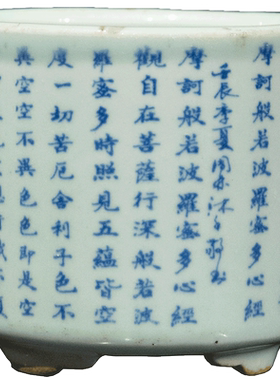 摩訶般若波羅蜜多心經
壬辰季夏周沐手敬書
摩訶般若波羅蜜多心經
觀自在菩薩行深般若波
羅蜜多時照見五蘊皆空
度一切苦厄舍利子色不
異空空不異色色即是空